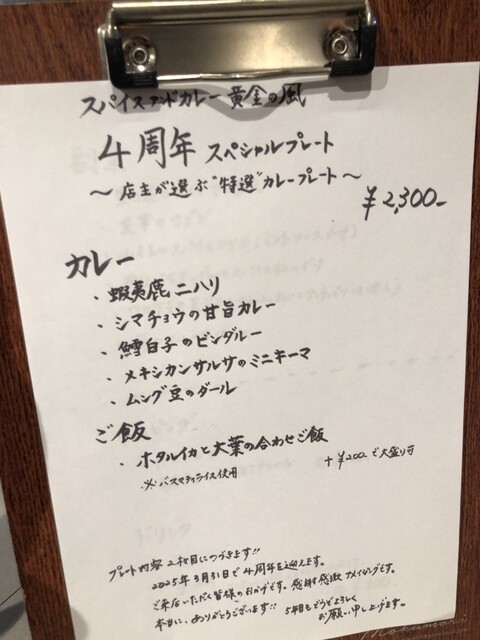 スパイスアンドカレー 黄金の風
4周年 スペシャルプレート
〜店主が選ぶ"特選"カレープレート〜
¥2,300-
カレー
・蝦夷鹿ニハリ
・シマチョウの甘旨カレー
・鱈白子のビンダルー
・メキシカンサルサのミニキーマ
・ムング豆のダール
ご飯
・ホタルイカと大葉の合わせご飯
※バスマティライス使用
+¥200で大盛り可
プレート内容2枚目につづきます!!
2025年3月31日で4周年を迎えます。
ご来店いただく皆様のおかげです。感謝感激
本当に、ありがとうございます!! 5年目もどうぞよろしく
お願い申し上げます。